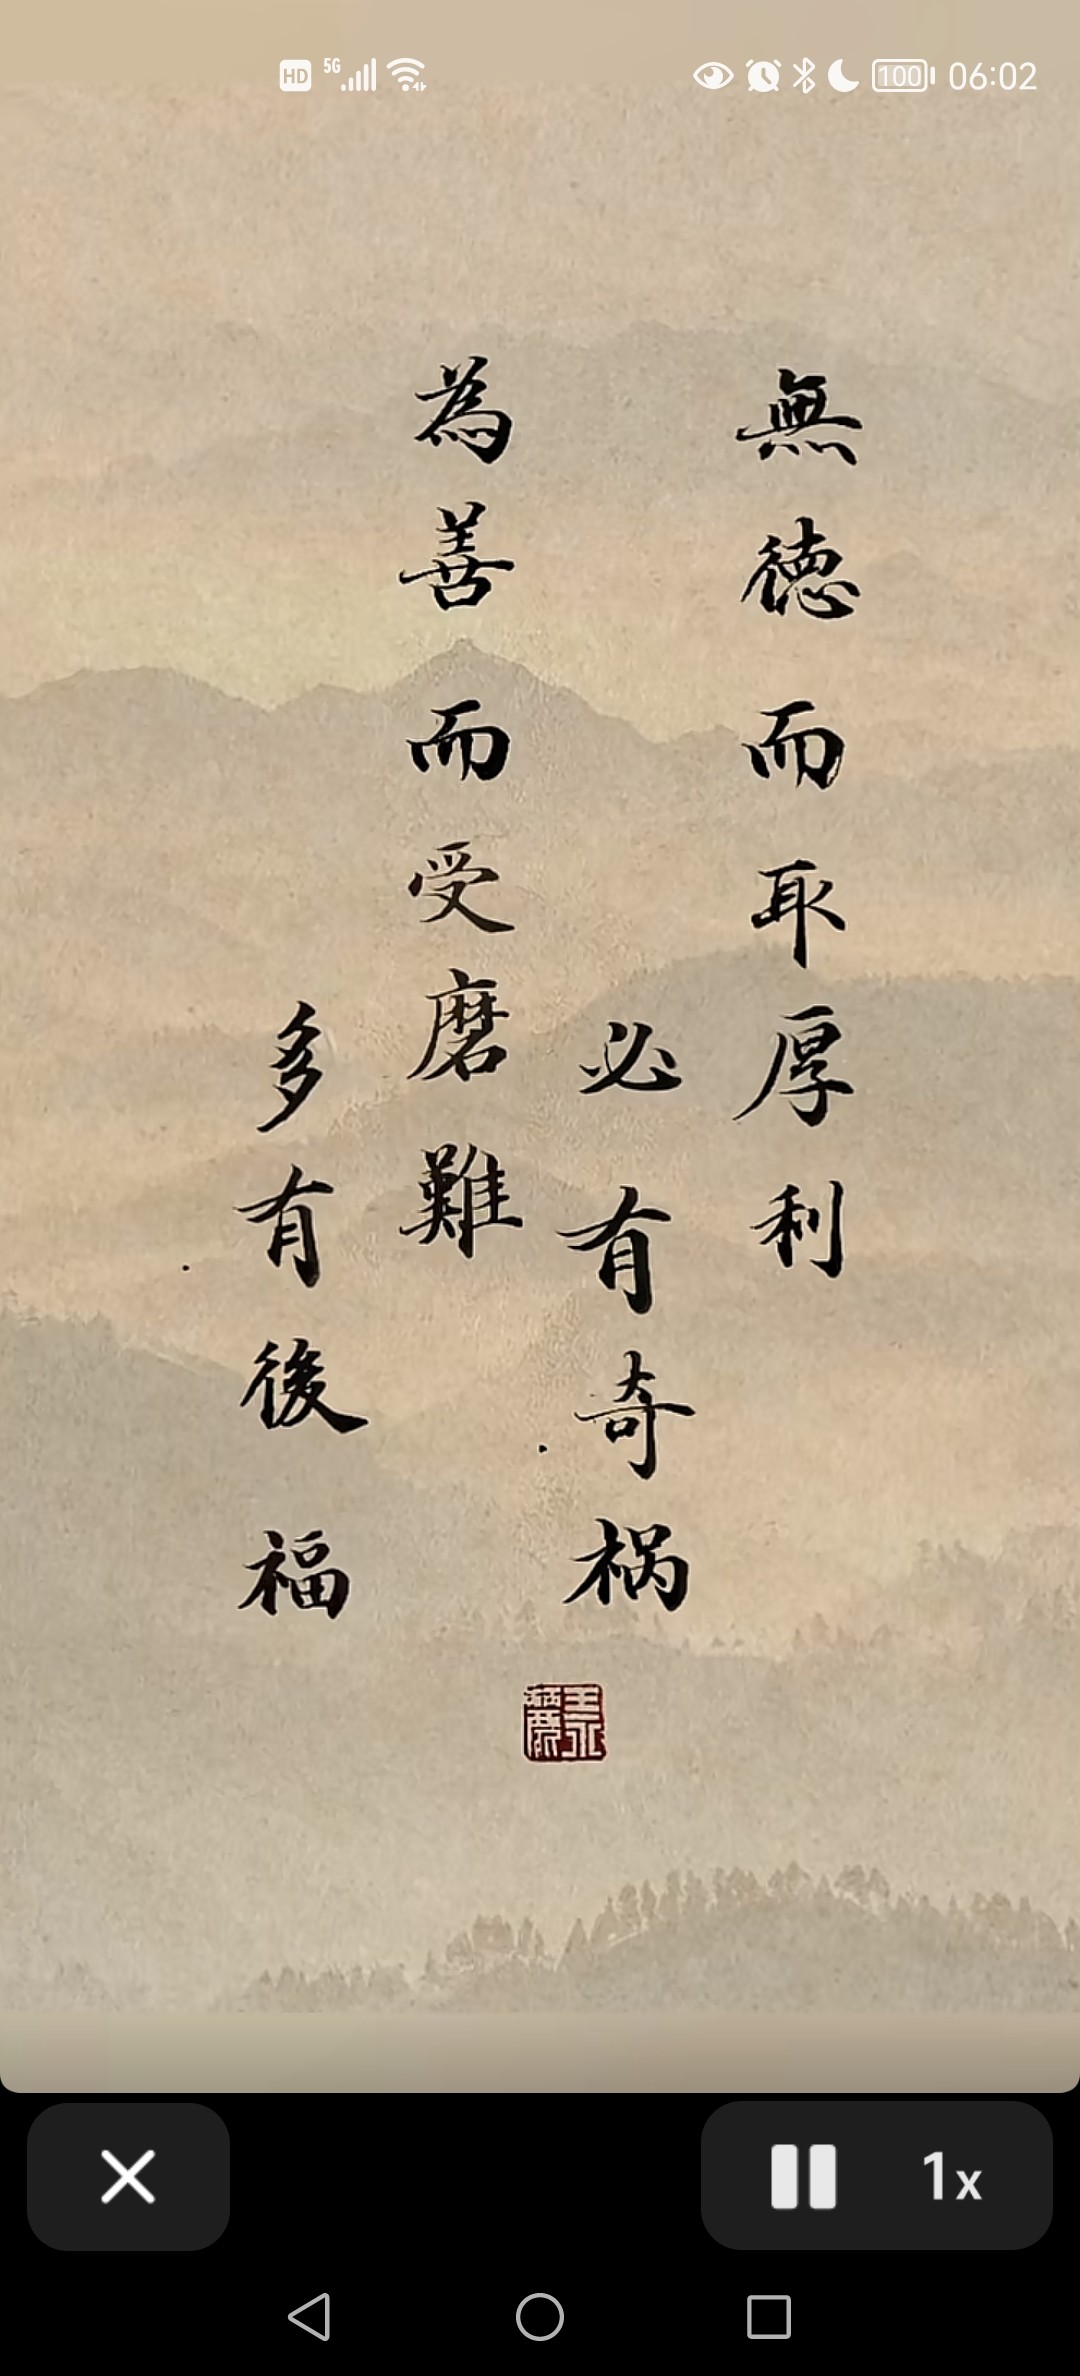 HD 5G 100 06:02
無德而取厚利
必有奇禍
為善而受磨難
多有後福
1x